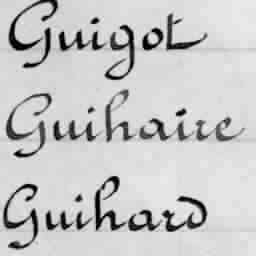 Guigot
Guihaire
Guihard